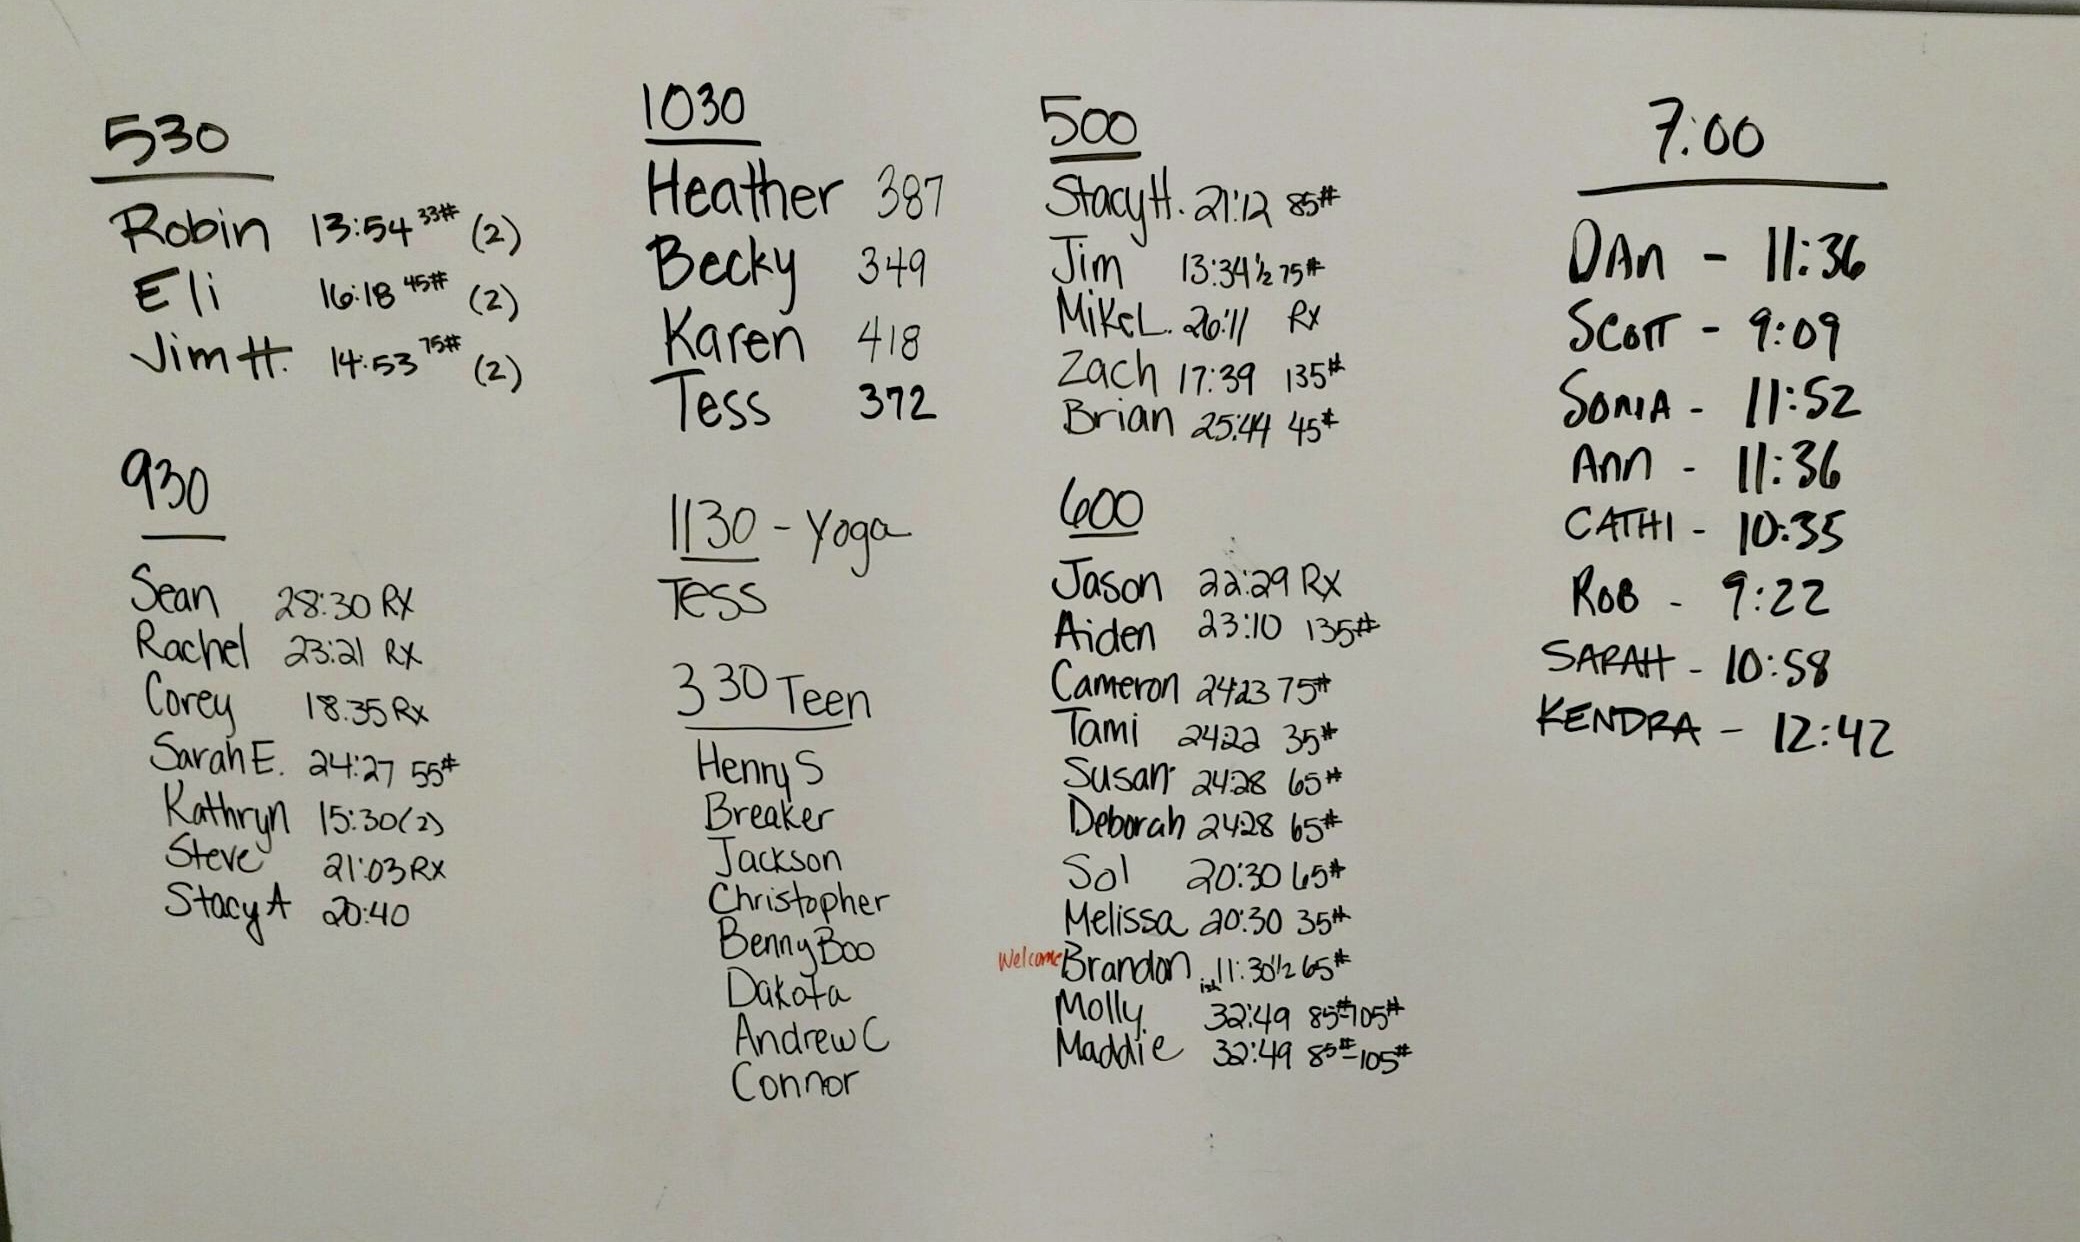 530
Robin 13:54 33# (2)
Eli 16:18 45# (2)
Jim H. 14:53 75# (2)
930
Sean 28:30 RX
Rachel 23:21 RX
Corey 18:35 RX
Sarah E. 24:27 55#
Kathryn 15:30 (2)
Steve 21:03 RX
Stacy A 20:40
1030
Heather 387
Becky 349
Karen 418
Tess 372
1130 - Yoga
Tess
330 Teen
Henry S
Breaker
Jackson
Christopher
Benny Boo
Dakota
Andrew C
Connor
500
Stacy H. 21:12 85#
Jim 13:34 1/2 75#
Mike L. 26:11 Rx
Zach 17:39 135#
Brian 25:44 45#
600
Jason 22:29 RX
Aiden 23:10 135#
Cameron 24:23 75#
Tami 24:22 35#
Susan 24:28 65#
Deborah 24:28 65#
Sol 20:30 65#
Melissa 20:30 35#
Welcome Brandon ish 11:30 1/2 65#
Molly 32:49 85#-105#
Maddie 32:49 85#-105#
7:00
DAn - 11:36
SCOTT - 9:09
SONIA - 11:52
Ann - 11:36
CATHI - 10:35
ROB - 9:22
SARAH - 10:58
KENDRA - 12:42